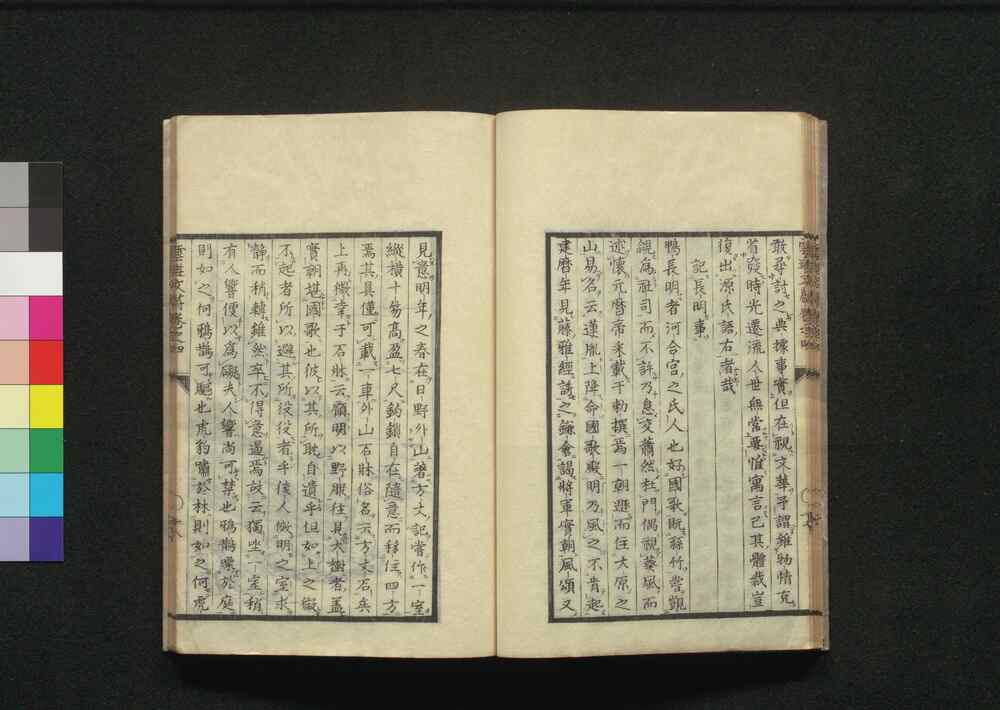 敢尋討之與據事實但在視文華乎謂雖物情充
首變時光遷流人世無常要惟寓言已其體裁豈
復出源氏語右者哉
記長明事
鴨長明者河合宮之氏人也好國歌既絲竹嘗覬
覦為社司而不許乃息交蕭然杜門偶視葵風而
述懷元曆帝采載于勅撰焉一朝遯而住大原之
山易名云蓮胤上降命國歌廢明乃風之不肯起
建曆年見藤雅經謁之鎌倉謁將軍實朝風頌又
見意明年之春在日野外山著方丈記嘗作一室
縱橫十笏高盈七尺鈎鎖自在隨意而移住四方
焉其具僅可載一車外山石牀俗名云方丈石矣
上再徵辜于石牀云爾明以野服往見大樹者蓋
實朝堪國歌也彼以其所耽自遺乎但如上之徵
不起者所以避其所役役者乎後人倣明之室求
靜而稍轉雖然卒不得意邁焉故云獨坐一室稍
有人響便以為礙夫人響尚可禁也鴉鵲噪於庭
則如之何鴉鵲可驅也虎豹嘯於林則如之何虎